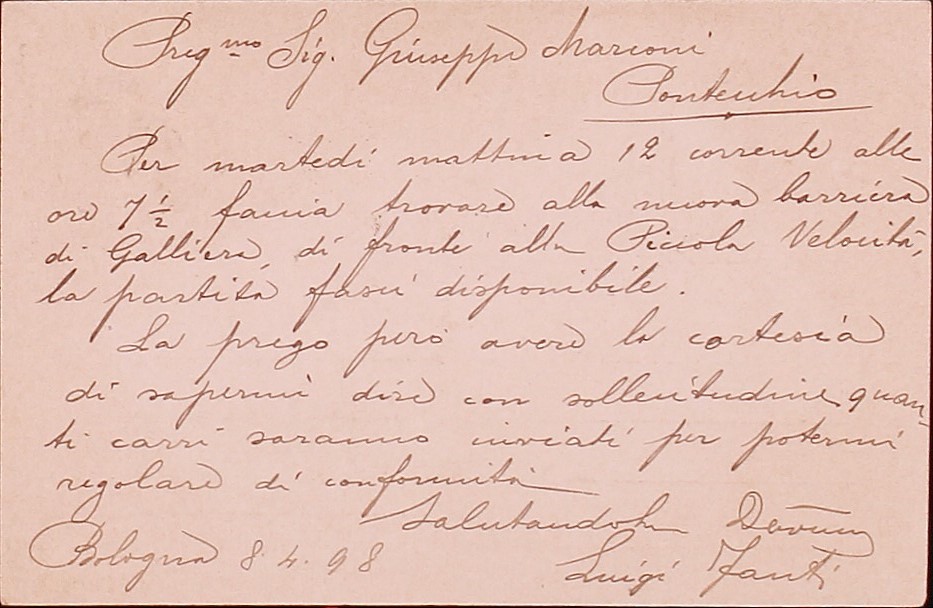 Preg.mo Sig. Giuseppe Marconi
Pontecchio
Per martedì mattina 12 corrente alle
ore 7 1/2 faccia trovare alla nuova barriera
di Galliera, di fronte alla Piccola Velocità,
la partita fasci disponibile.
La prego però avere la cortesia
di sapermi dire con sollecitudine quan-
ti carri saranno inviati per potermi
regolare di conformità
Salutandola Dev.mo
Bologna 8.4.98 Luigi Fanti